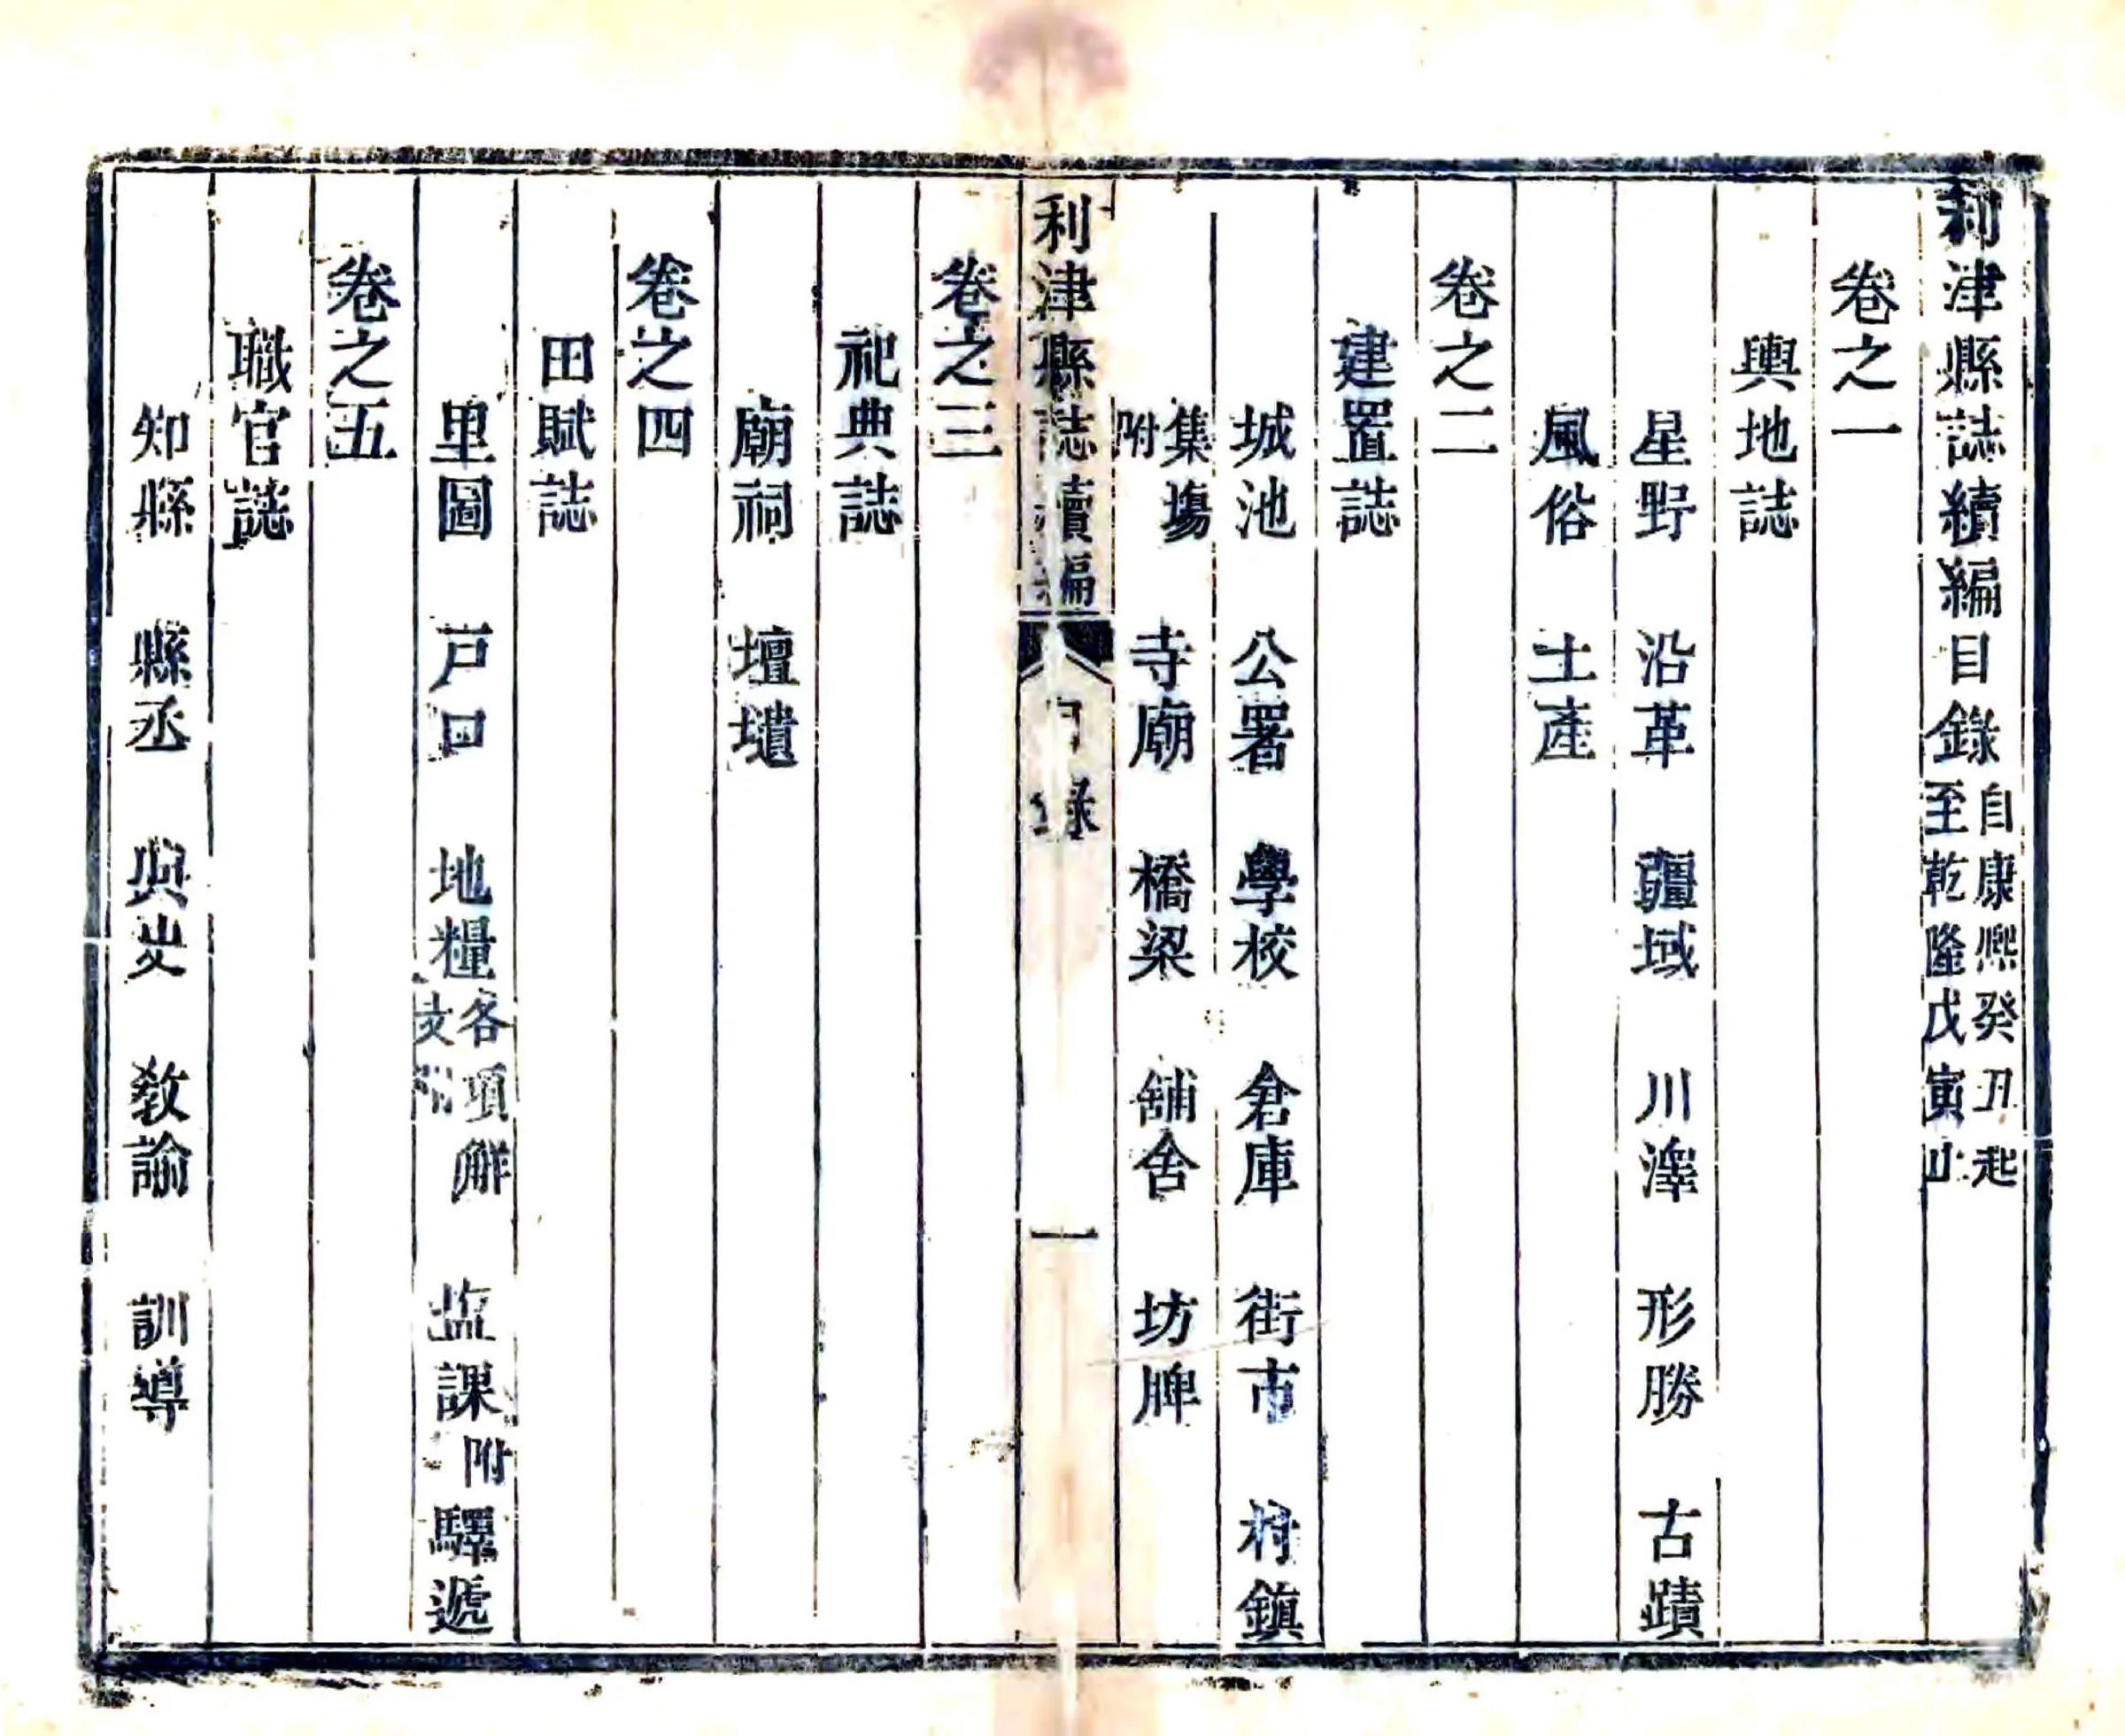 利津縣誌續編目錄自康熙癸丑起至乾隆戊寅止
卷之一
輿地誌
星野 沿革 疆域 川澤 形勝 古蹟
風俗 土產
卷之二
建置誌
城池 公署 學校 倉庫 街市 村鎮
集塲附 寺廟 橋梁 舖舍 坊牌
利津縣誌續編 目錄 一
卷之三
祀典誌
廟祠 壇壝
卷之四
田賦誌
里圖 戸口 地糧各項解支附 盐課附 驛遞
卷之五
職官誌
知縣 縣丞 典史 教諭 訓導